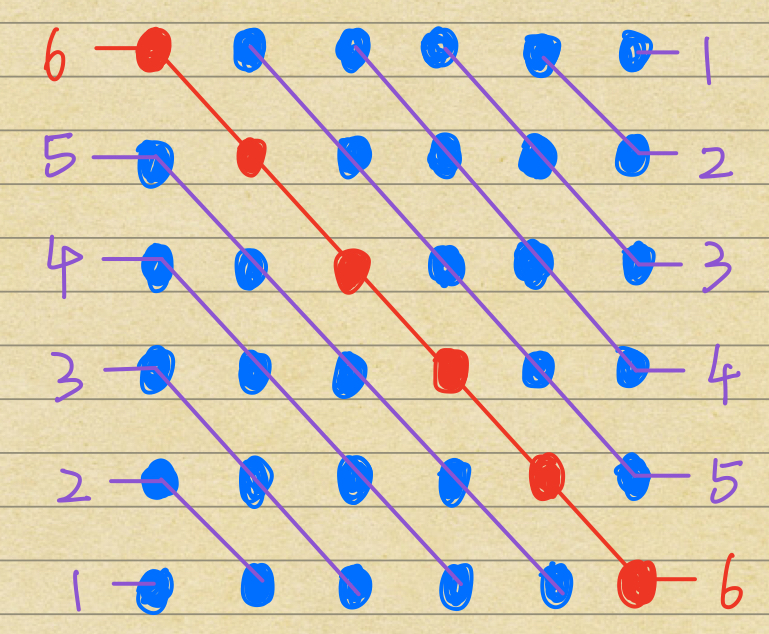 6 1
5 2
4 3
3 4
2 5
1 6